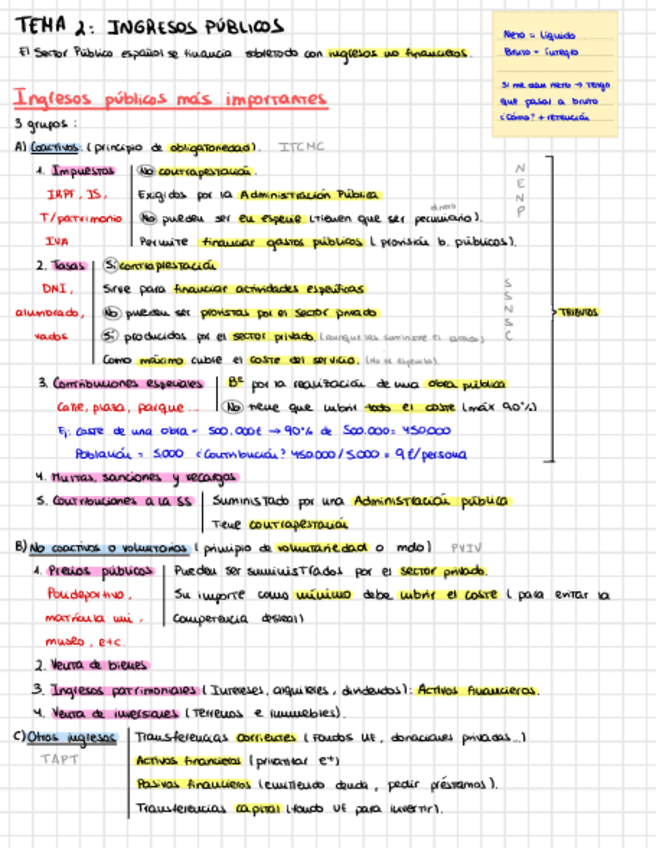 TEMA 2: INGRESOS PÚBLICOS
El Sector Público español se financia sobretodo con ingresos no financieros.
Neto = líquido
Bruto = íntegro
Si me dan neto → tengo
que pasar a bruto
¿Cómo? + retención
Ingresos públicos más importantes
3 grupos:
A) Coactivos (principio de obligatoriedad). ITCMC
1. Impuestos
IRPF, IS,
T/patrimonio
IVA
No contraprestación.
Exigidos por la Administración Pública
dinero
No pueden ser en especie (tienen que ser pecuniario).
Permite financiar gastos públicos (provisión b. públicos).
N
E
N
P
2. Tasas
DNI,
alumbrado,
vados
Sí contraprestación
Sirve para financiar actividades específicas
No pueden ser provistas por el sector privado
Sí producidos por el sector privado. (aunque las suministre el estado)
Como máximo cubre el coste del servicio. (No se especula)
S
S
N
S
C
TRIBUTOS
3. Contribuciones especiales
Calle, plaza, parque...
Bº por la realización de una obra pública
No tiene que cubrir todo el coste (máx 90%)
Ej: coste de una obra = 500.000€ → 90% de 500.000= 450.000
Población = 5.000 ¿Contribución? 450.000/5.000 = 9€/persona
4. Multas, sanciones y recargos
5. Contribuciones a la SS
Suministrado por una Administración pública
Tiene contraprestación
B) No coactivos o voluntarios (principio de voluntariedad o mdo) PVIV
1. Precios públicos
Polideportivo,
matrícula uni,
museo, etc.
Pueden ser suministrados por el sector privado.
Su importe como mínimo debe cubrir el coste (para evitar la
competencia desleal)
2. Venta de bienes
3. Ingresos patrimoniales (Intereses, alquileres, dividendos): Activos financieros.
4. Venta de inversiones (Terrenos e inmuebles).
C) Otros ingresos
TAPT
Transferencias corrientes (Fondos UE, donaciones privadas...)
Activos financieros (privatizar eª)
Pasivos financieros (emitiendo deuda, pedir préstamos).
Transferencias capital (fondo UE para invertir).